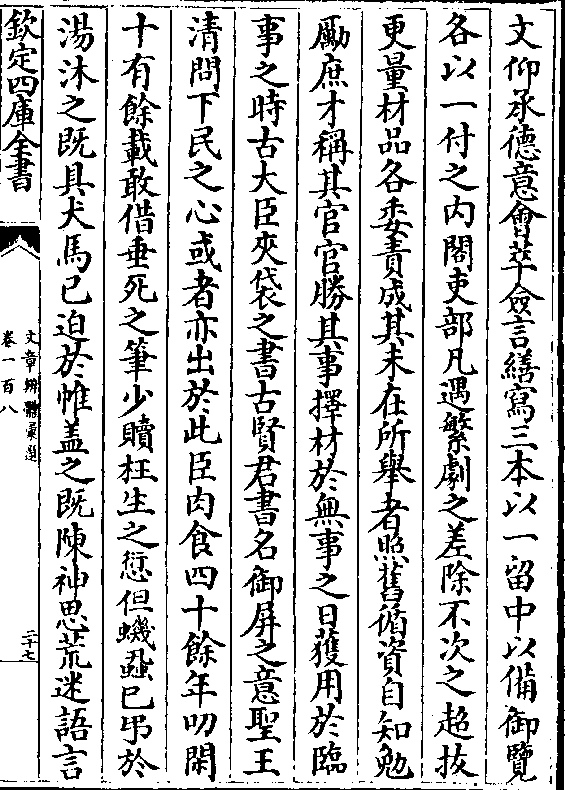 文仰承德意會萃僉言繕寫三本以一留中以備御覽
各以一付之内閣吏部凡遇繁劇之差除不次之超抜
更量材品各委責成其未在所舉者照舊循資自知勉
勵庶才稱其官官勝其事擇材於無事之日獲用於臨
事之時古大臣夾袋之書古賢君書名御屏之意聖王
清問下民之心或者亦出於此臣肉食四十餘年叨閑
十有餘載敢借垂死之筆少贖枉生之愆但蟣蝨已弔於
湯沐之既具犬馬已迫於帷盖之既陳神思荒迷語言
欽定四庫全書
文章辨體彙選
卷一百八
二十七